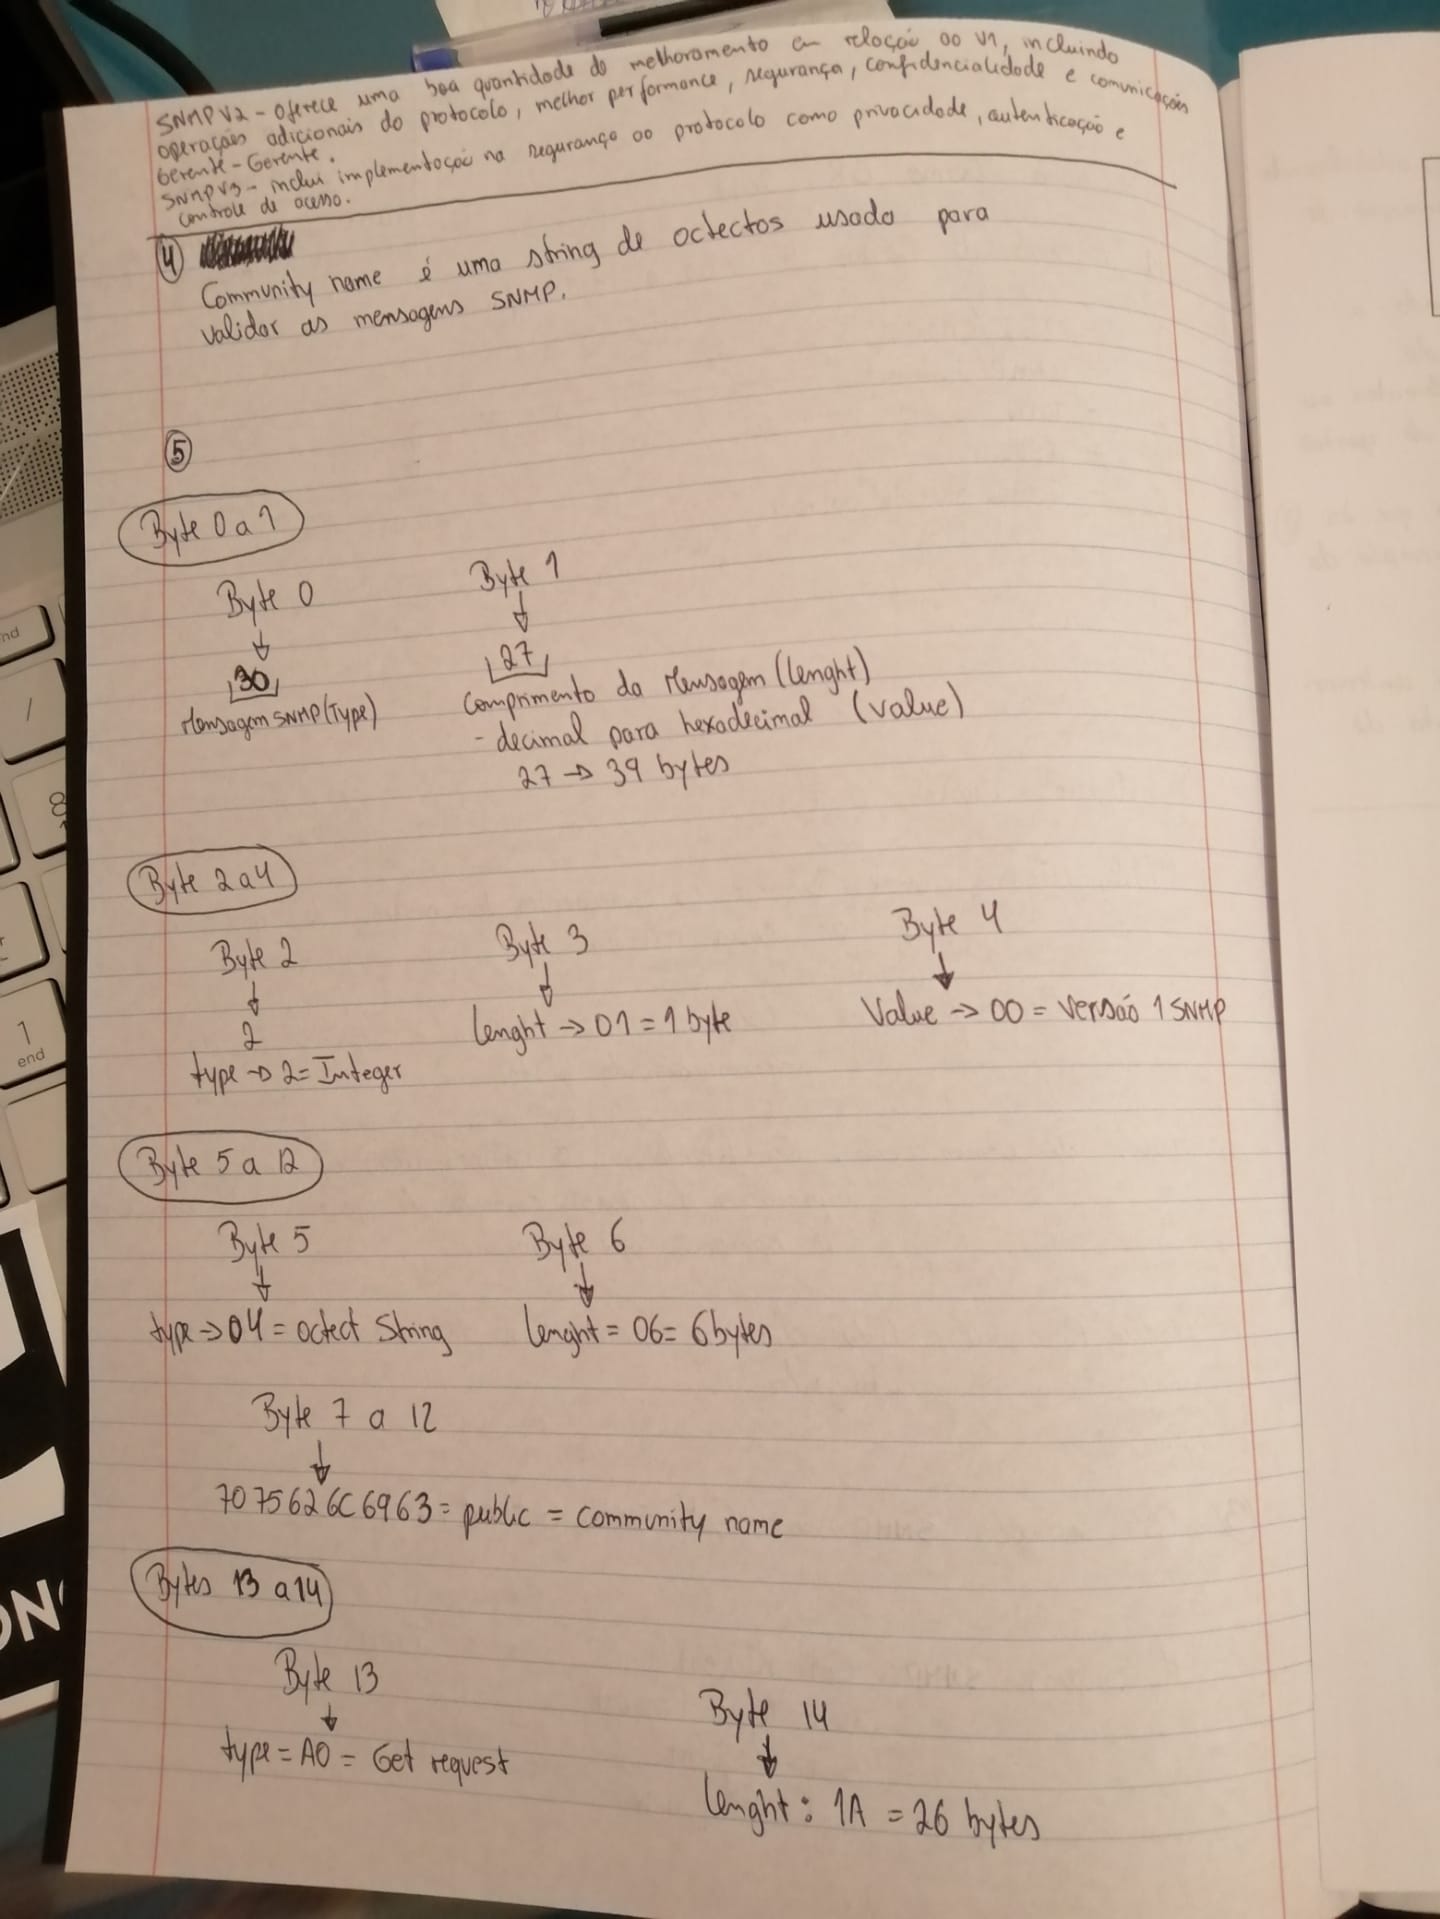 SNMP V2 - oferece uma boa quantidade de melhoramento em relação ao V1, incluindo
operações adicionais do protocolo, melhor performance, segurança, confidencialidade e comunicação
Gerente - Gerente.
SNMP V3 - inclui implementação na segurança ao protocolo como privacidade, autenticação e
controle de acesso.
4
Community name é uma string de octectos usado para
validar as mensagens SNMP.
5
Byte 0 a 1
Byte 0 Byte 1
30 27
Mensagem SNMP (Type) Comprimento da Mensagem (lenght)
- decimal para hexadecimal (value)
27 → 39 bytes
Byte 2 a 4
Byte 2 Byte 3 Byte 4
2 lenght → 01 = 1 byte Value → 00 = Versão 1 SNMP
type → 2 = Integer
Byte 5 a 12
Byte 5 Byte 6
type → 04 = Octect String lenght = 06 = 6 bytes
Byte 7 a 12
7075626C6963 = public = community name
Bytes 13 a 14
Byte 13 Byte 14
type = A0 = Get request lenght : 1A = 26 bytes
nd
/
8
1
end
ON